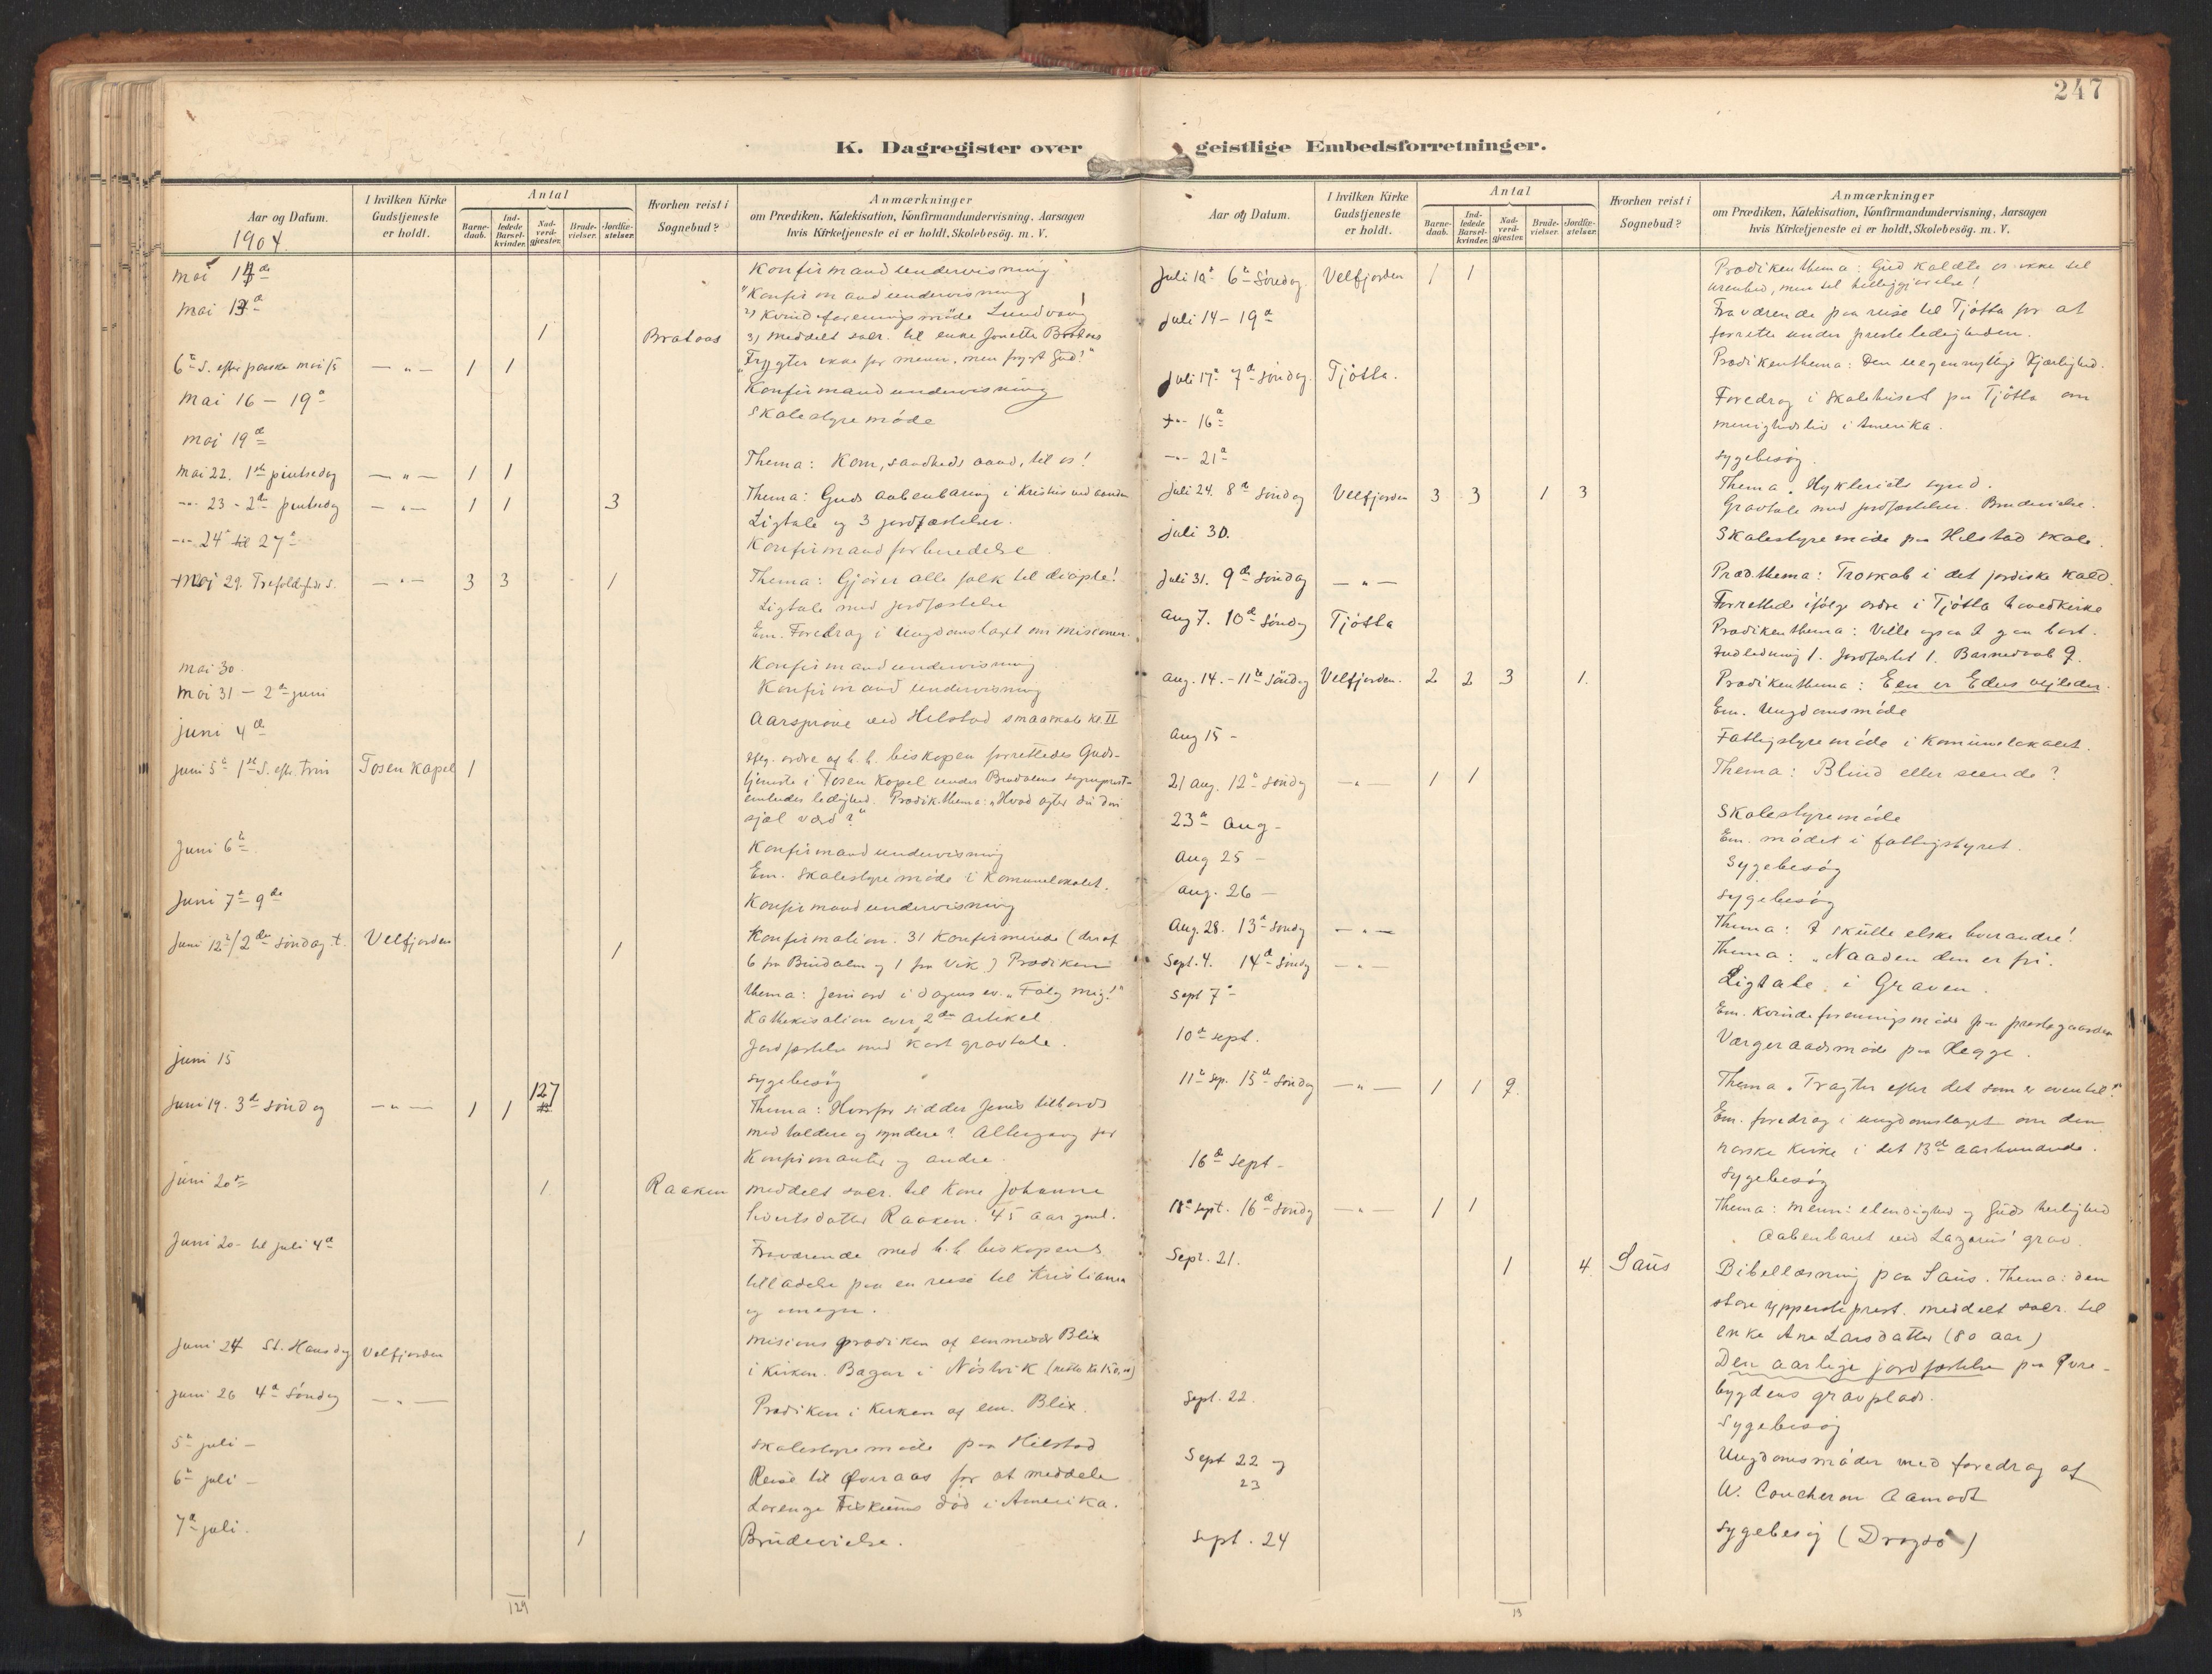 247
K. Dagregister over geistlige Embedsforretninger.
Aar og Datum.
I hvilken Kirke Gudstjeneste er holdt.
Antal
Barne-daab.
Ind-ledede Barsel-kvinder.
Nad-verd-gjæster.
Brude-vielser.
Jordfæ-stelser.
Hvorhen reist i Sognebud?
Anmærkninger
om Prædiken, Katekisation, Konfirmandundervisning, Aarsagen
hvis Kirketjeneste ei er holdt, Skolebesög. m. V.
1904
mai de Konfirmandundervisning
mai "Konfirmandundervisning
2) Kvindeforeningsmøde
1 Brataas 3) meddelt sacr. til enke
6te S. efter paaske mai 15 — " — 1 1 "Frygter ikke for menn. men frygt Gud!"
mai 16 – 19de Konfirmandundervisning
mai 19de Skolestyremøde
mai 22. 1ste pintsedag — " — 1 1 Thema: Kom, sandheds aand, til os!
-"- 23 - 2den pintsedag — " — 1 1 3 Thema: Guds aabenbaring i Kristus ved aanden
Ligtale og 3 jordfæstelser.
-"- 24 til 27de Konfirmandforberedelse
Maj 29. Trefoldigheds S. — " — 3 3 1 Thema: Gjører alle folk til disiple!
Ligtale med jordfæstelse
Em. Foredrag i Ungdomslaget om missionen.
mai 30. Konfirmandundervisning
mai 31 – 2den juni Konfirmandundervisning
juni 4de Aarsprøve ved Helstad smaaskole kl. II
juni 5te 1ste S. eft. trin Tosen Kapel 1 efter ordre af h. h. biskopen forrettedes Guds-
tjeneste i Tosen Kapel under Bindalens sogneprest-
embedes ledighed. Prædik.thema: "Hvad agter du din
sjæl værd?"
Juni 6te Konfirmandundervisning
Em. Skolestyremøde i Kommunelokalet.
Juni 7de - 9de Konfirmandundervisning
Juni 12te / 2den søndag t. Velfjorden 1 Konfirmation. 31 Konfirmerede (deraf
6 fra Bindalen og 1 fra Vik) Prædiken
thema: Jesu ord i dagens ev. "Følg mig!"
Kathekisation over 2den artikel.
Jordfæstelse med kort gravtale.
juni 15 Sygebesøg
Juni 19. 3de søndag — " — 1 1 127 Thema: Hvorfor sidder Jesus tilbords
med toldere og syndere? Altergang for
Konfirmanter og andre.
juni 20de 1 Raaken meddelt sacr. til Kone Johanna
Sivertsdatter Raaken. 45 aar gml.
Juni 20 - til juli 4de Fraværende med h. h. biskopens
tilladelse paa en reise til Kristiania
og omegn.
Juni 24 St. Hansdag Velfjorden Misions prædiken af Blix
i Kirken. Bazar i Nøstvik
juni 26 4de Søndag — " — Prædiken i Kirken af em. Blix.
5te juli – Skolestyremøde paa Hilstad
6te juli – Reise til Øveraas for at meddele
død i Amerika.
7de juli. 1 Brudevielse.
129
Aar og Datum.
I hvilken Kirke Gudstjeneste er holdt.
Antal
Barne-daab.
Ind-ledede Barsel-kvinder.
Nad-verd-gjæster.
Brude-vielser.
Jordfæ-stelser.
Hvorhen reist i Sognebud?
Anmærkninger
om Prædiken, Katekisation, Konfirmandundervisning, Aarsagen
hvis Kirketjeneste ei er holdt, Skolebesög. m. V.
Juli 10de 6te Søndag Velfjorden 1 1 Prædikenthema: Gud kaldte os ikke til
urenhed, men til helliggjørelse!
Juli 14 – 19de Fraværende paa reise til Tjøtta for at
forrette under presteledigheden.
Juli 17de 7de søndag Tjøtta. Prædikenthema: Den uegennyttige kjærlighed.
-"- 16de Foredrag i skolehuset paa Tjøtta om
menighedsliv i Amerika.
-"- 21de Sygebesøg.
Juli 24. 8de søndag Velfjorden 3 3 1 3 Thema. Hykleriets synd.
Gravtale med jordfæstelser. Brudevielse.
juli 30. Skolestyremøde paa Hilstad skole.
Juli 31. 9de søndag — " — Præd.thema: Troskab i det jordiske kald.
Aug 7. 10de Søndag Tjøtta Forrettede ifølge ordre i Tjøtta hovedkirke
Prædikenthema: Ville ogsaa I gaa bort.
Indledning 1. Jordfæstet 1. Barnedaab 9.
Aug. 14. – 11te Søndag Velfjorden. 2 2 3 1. Prædikenthema: Een er Eders vejleder.
Em. Ungdomsmøde
Aug 15 – Fattigstyremøde i Kommunelokalet.
21 aug. 12te søndag — " — 1 1 Thema: Blind eller seende?
23de Aug – Skolestyremøde
Em. mødet i fattigstyret.
Aug 25 – Sygebesøg
Aug. 26 – Sygebesøg
Aug. 28. 13de søndag — " — Thema: I skulle elske hverandre!
Sept. 4. 14de søndag — " — Thema: "Naaden den er fri.
Sept 7de Ligtale i Graven.
Em. Kvindeforeningsmøde paa prestegaarden
10de sept. Værgeraadsmøde paa Hegge.
11te Sep. 15de søndag — " — 1 1 9. Thema. Tragter efter det som er oventil!"
Em. foredrag i ungdomslaget om den
norske Kirke i det 13de aarhundrede.
16de Sept – Sygebesøg
18de sept. 16de søndag — " — 1 1 Thema: Menn: elendighed og Guds herlighed
aabenbaret ved Lazarus' grav.
Sept. 21. 1 4. Saus Bibellæsning paa Saus. Thema: den
store ypperste prest. meddelt sacr. til
enke Ane Larsdatter (80 aar)
Den aarlige jordfæstelse paa Øvre-
bygdens gravplads.
Sept. 22. Sygebesøg
Sept 22 og
23 Ungdomsmøder med foredrag af
W. Coucheron Aamodt
Sept. 24 Sygebesøg
19